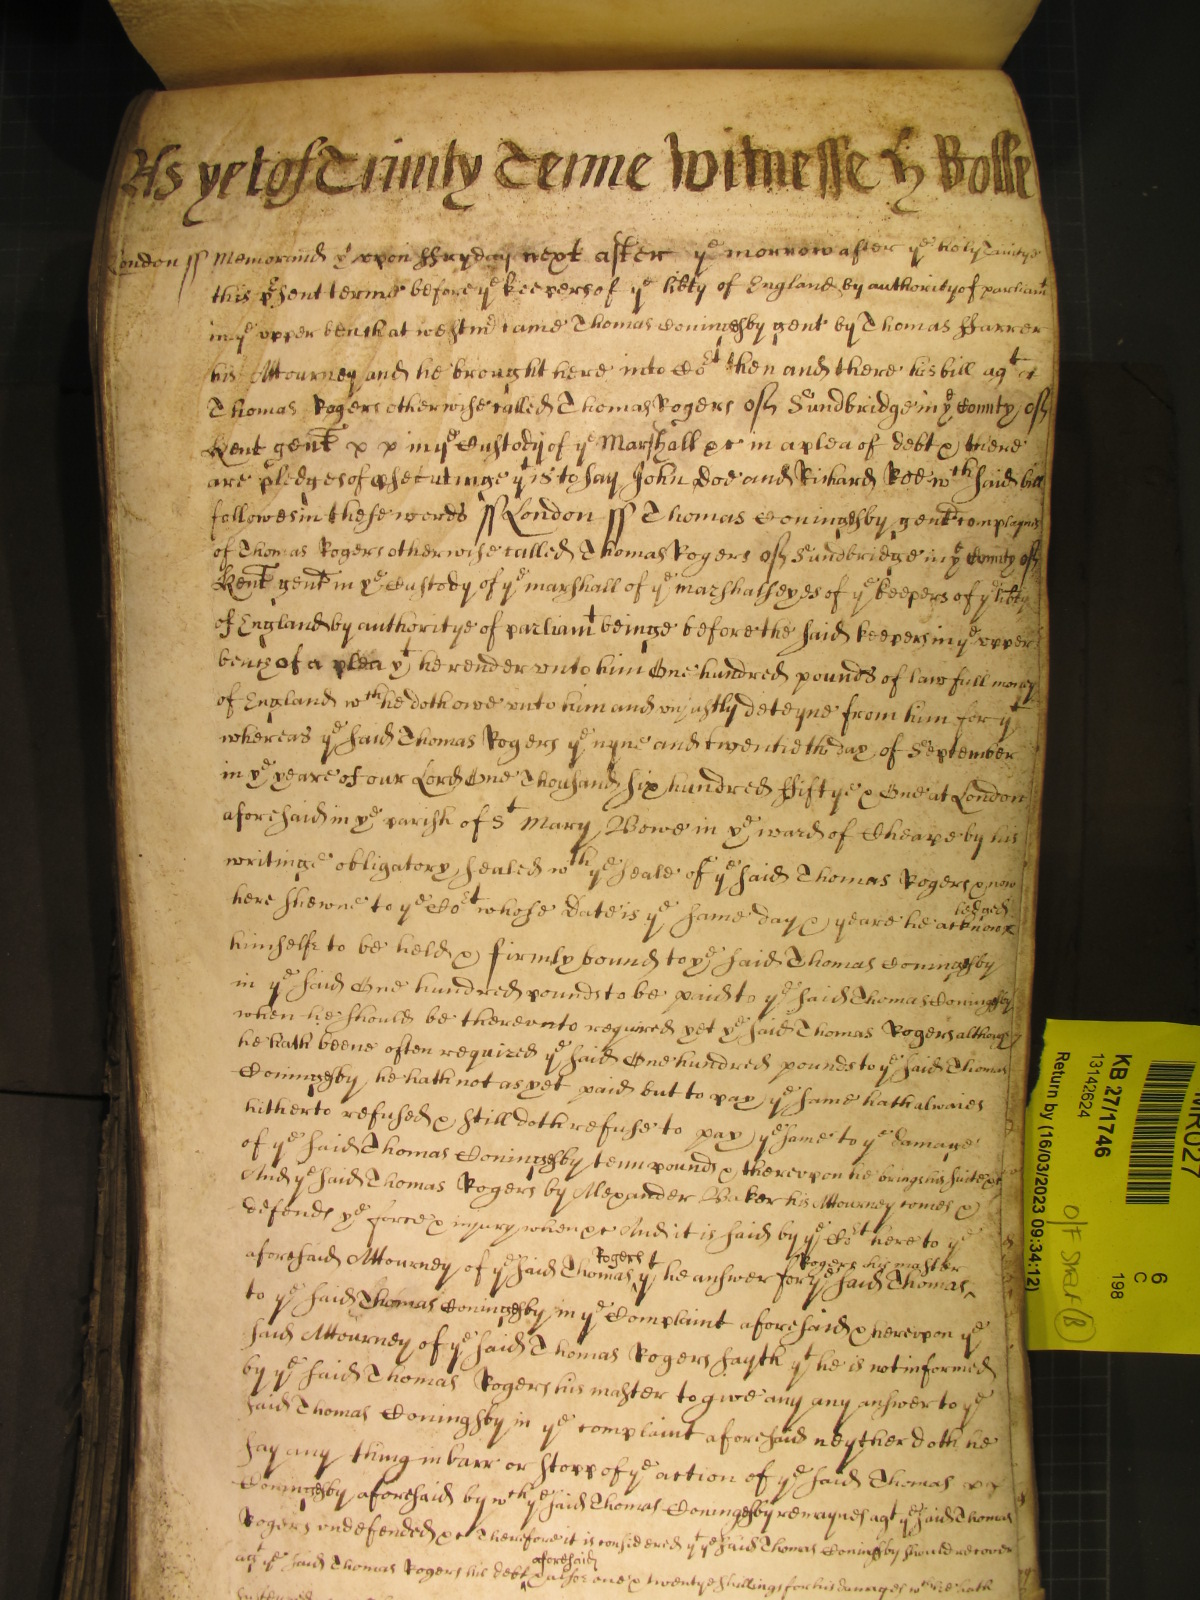 As yet of Trinity Terme Witnesse H Rolle
London ss Memorand yt vpon ffryday next after ye morrow after ye holy Trinitye
this psent terme before ye keepers of ye libty of England by authority of parliamt
in ye vpper bench at westmr came Thomas Coningsby gent by Thomas ffarrer
his Attourney and he brought here into Cort then and there his bill agt
Thomas Rogers otherwise called Thomas Rogers of Sundbridge in ye County of
Kent gent in ye Custody of ye Marshall &c in a plea of debt & there
are pledges of psecutinge yt is to say John Doe and Richard Roe wch said bill
followes in these words ss London ss Thomas Coningsby gent complaynes
of Thomas Rogers otherwise called Thomas Rogers of Sundbridge in ye County of
Kent gent in ye Custody of ye marshall of ye marshalseyes of ye keepers of ye libty
of England by authoritye of parliamt beinge before the said keepers in ye vpper
bench of a plea yt he render vnto him One hundred pounds of lawfull money
of England wch he doth owe vnto him and vnjustly deteyne from him for yt
whereas ye said Thomas Rogers ye nyne and twentieth day of September
in ye yeare of our Lord One Thousand six hundred ffiftye & One at London
aforesaid in ye parish of St Mary Bowe in ye ward of Cheape by his
writinge obligatory sealed wth ye seale of ye said Thomas Rogers & now
here shewne to ye Cort whose Date is ye same day & yeare he acknow
ledged
himselfe to be held & firmly bound to ye said Thomas Coningsby
in ye said One hundred pounds to be paid to ye said Thomas Coningsby
when he should be therevnto required yet ye said Thomas Rogers although
he hath beene often required ye said One hundred pounds to ye said Thomas
Coningsby he hath not as yet paid but to pay ye same hath alwaies
hitherto refused & still doth refuse to pay ye same to ye damage
of ye said Thomas Coningsby tenn pounds & therevpon he brings his suite &c
And ye said Thomas Rogers by Alexander Baker his Attourney comes &
defends ye force & injury when &c And it is said by ye Cort here to ye
aforesaid Attourney of ye said Thomas Rogers yt he answer for ye said Thomas Rogers his master
to ye said Thomas Coningsby in ye Complaint aforesaid & herevpon ye
said Attourney of ye said Thomas Rogers sayth yt he is not informed
by ye said Thomas Rogers his master to give any any answer to ye
said Thomas Coningsby in ye complaint aforesaid neyther doth he
say any thing in barr or stopp of ye action of ye said Thomas
Coningsby aforesaid by wch ye said Thomas Coningsby remaynes agt ye said Thomas
Rogers vndefended &c Therefore it is considered yt ye said Thomas Coningsby should recover
agt ye said Thomas Rogers his debt aforesaid & alsoe one & twentye shillings for his damages wch he hath
KB 27/1746
13142624
Return by (16/03/2023 09:34:12)
6
C
198
O/F Shelf (B)